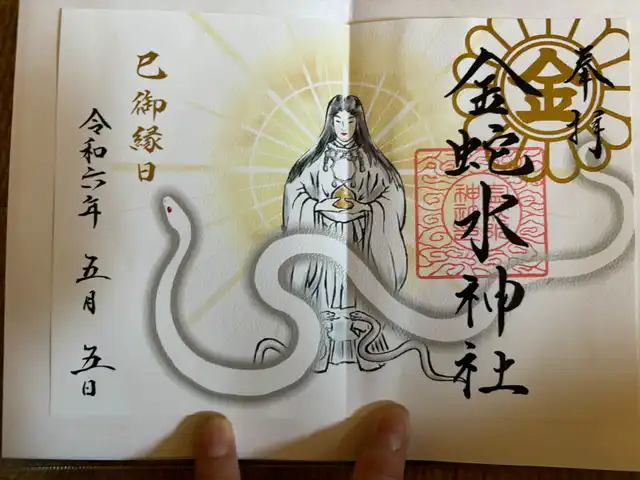 奉拝
金
金蛇水神社
巳御縁日
令和六年 五月 五日